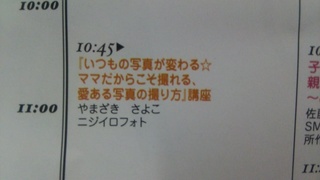 10:00
10:45▶
『いつもの写真が変わる☆
ママだからこそ撮れる、
愛ある写真の撮り方』講座
やまざき さよこ
ニジイロフォト
11:00
10:
子
親
～
佐
SM
所作
11: